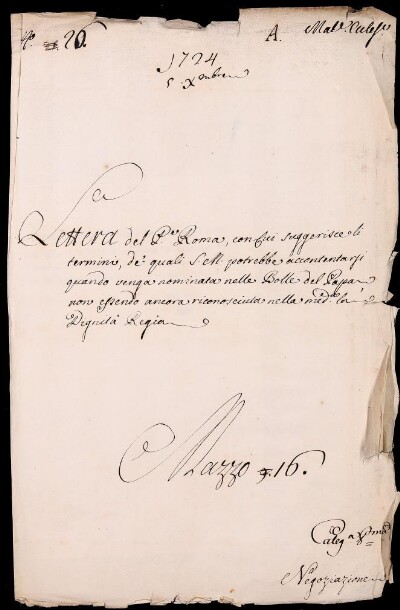 N.º 20.
A.
Mat.e Eccles.e
1724
5. Xmbre
La
Lettera del P.e Roma, con cui suggerisce li
termini, de' quali S. M. potrebbe accontentarsi
quando venga nominata nelle Bolle del Papa
non essendo ancora riconosciuta nella med.a la
Degnità Regia
Mazzo 16.
Categ.a
Negoziazione